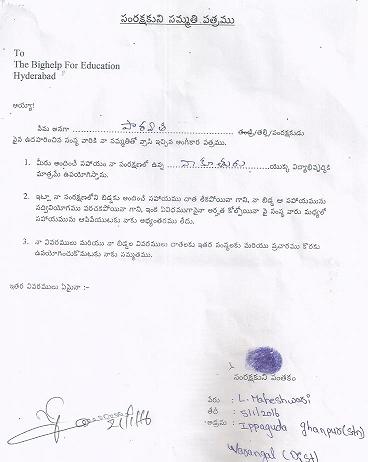 సంరక్షకుని సమ్మతి పత్రము
To
The Bighelp For Education
Hyderabad
అయ్యా!
నేను అనగా పార్వతి తండ్రి/తల్లి/సంరక్షకుడు
పైన ఉదహరించిన సంస్థ వారికి నా సమ్మతితో వ్రాసి ఇచ్చిన అంగీకార పత్రము.
1. మీరు అందించే సహాయం నా సంరక్షణలో ఉన్న నా కూతురు యొక్క విద్యాభివృద్ధికి
మాత్రమే ఉపయోగిస్తాను.
2. ఇట్లా నా సంరక్షణలోని బిడ్డకు అందించే సహాయము దాత లేకపోయినా గాని, నా బిడ్డ ఆ సహాయమును
సద్వినియోగము పరచకపోయినా గాని, ఇంక ఏవిధముగానైనా అర్హత కోల్పోయినా పై సంస్థ వారు మధ్యలో
సహాయమును ఆపివేయుటకు నాకు అభ్యంతరము లేదు.
3. నా వివరములు మరియు నా బిడ్డల వివరములు దాతలకు ఇతర సంస్థలకు మరియు ప్రచారము కొరకు
ఉపయోగించుకొనుటకు నాకు సమ్మతము.
ఇతర వివరములు ఏమైనా :-
సంరక్షకుని సంతకం
పేరు : L. Maheshwari
తేది : 5/1/2016
అడ్రసు : Ippaguda ghanpur(stn)
Warangal (Dist)